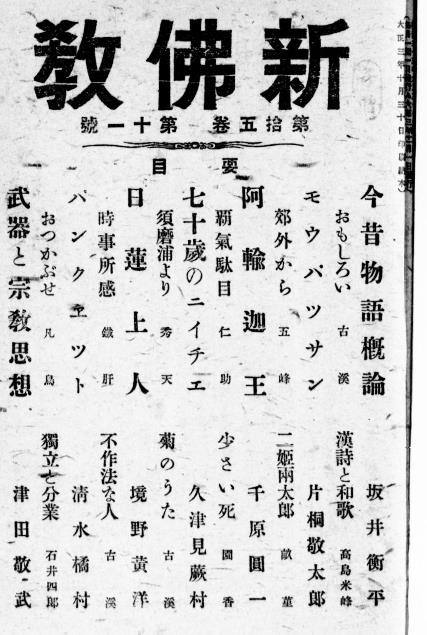 新佛敎
第拾五卷 第十一號
要目
今昔物語概論 坂井衡平
おもしろい 古溪
漢詩と和歌 高島米峰
モウパツサン 片桐敬太郎
郊外から 五峰
二姬兩太郎
阿輸迦王 千原圓一
覇氣駄目 仁助
少さい死 園香
七十歲のニイチエ 久津見蕨村
須磨浦より 秀天
菊のうた 古溪
日蓮上人 境野黃洋
時事所感 鐵肝
不作法な人 古溪
パンクヱツト 淸水橘村
おつかぶせ 凡鳥
獨立と分業 石井四郎
武器と宗敎思想 津田敬武